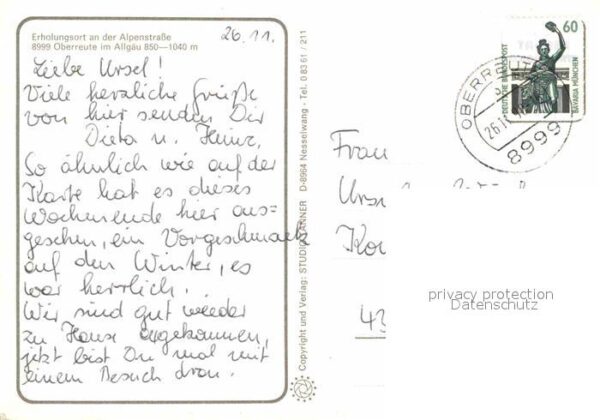 Erholungsort an der Alpenstraße
8999 Oberreute im Allgäu 850—1040 m
26.11.
Liebe Ursel!
Viele herzliche Grüße
von hier senden Dir
Dieta u. Heinz.
So ähnlich wie auf der
Karte hat es dieses
Wochenende hier aus=
gesehen, ein Vorgeschmack
auf den Winter, es
war herrlich.
Wir sind gut wieder
zu Hause angekommen,
jetzt bist Du mal mit
einem Besuch dran.
Copyright und Verlag: STUDIO TANNER D-8964 Nesselwang - Tel. 0 83 61 / 211
60
DEUTSCHE BUNDESPOST
BAVARIA MÜNCHEN
8999
Frau
43
privacy protection
Datenschutz